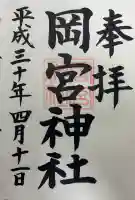 奉拝
岡宮神社
平成三十年四月十一日